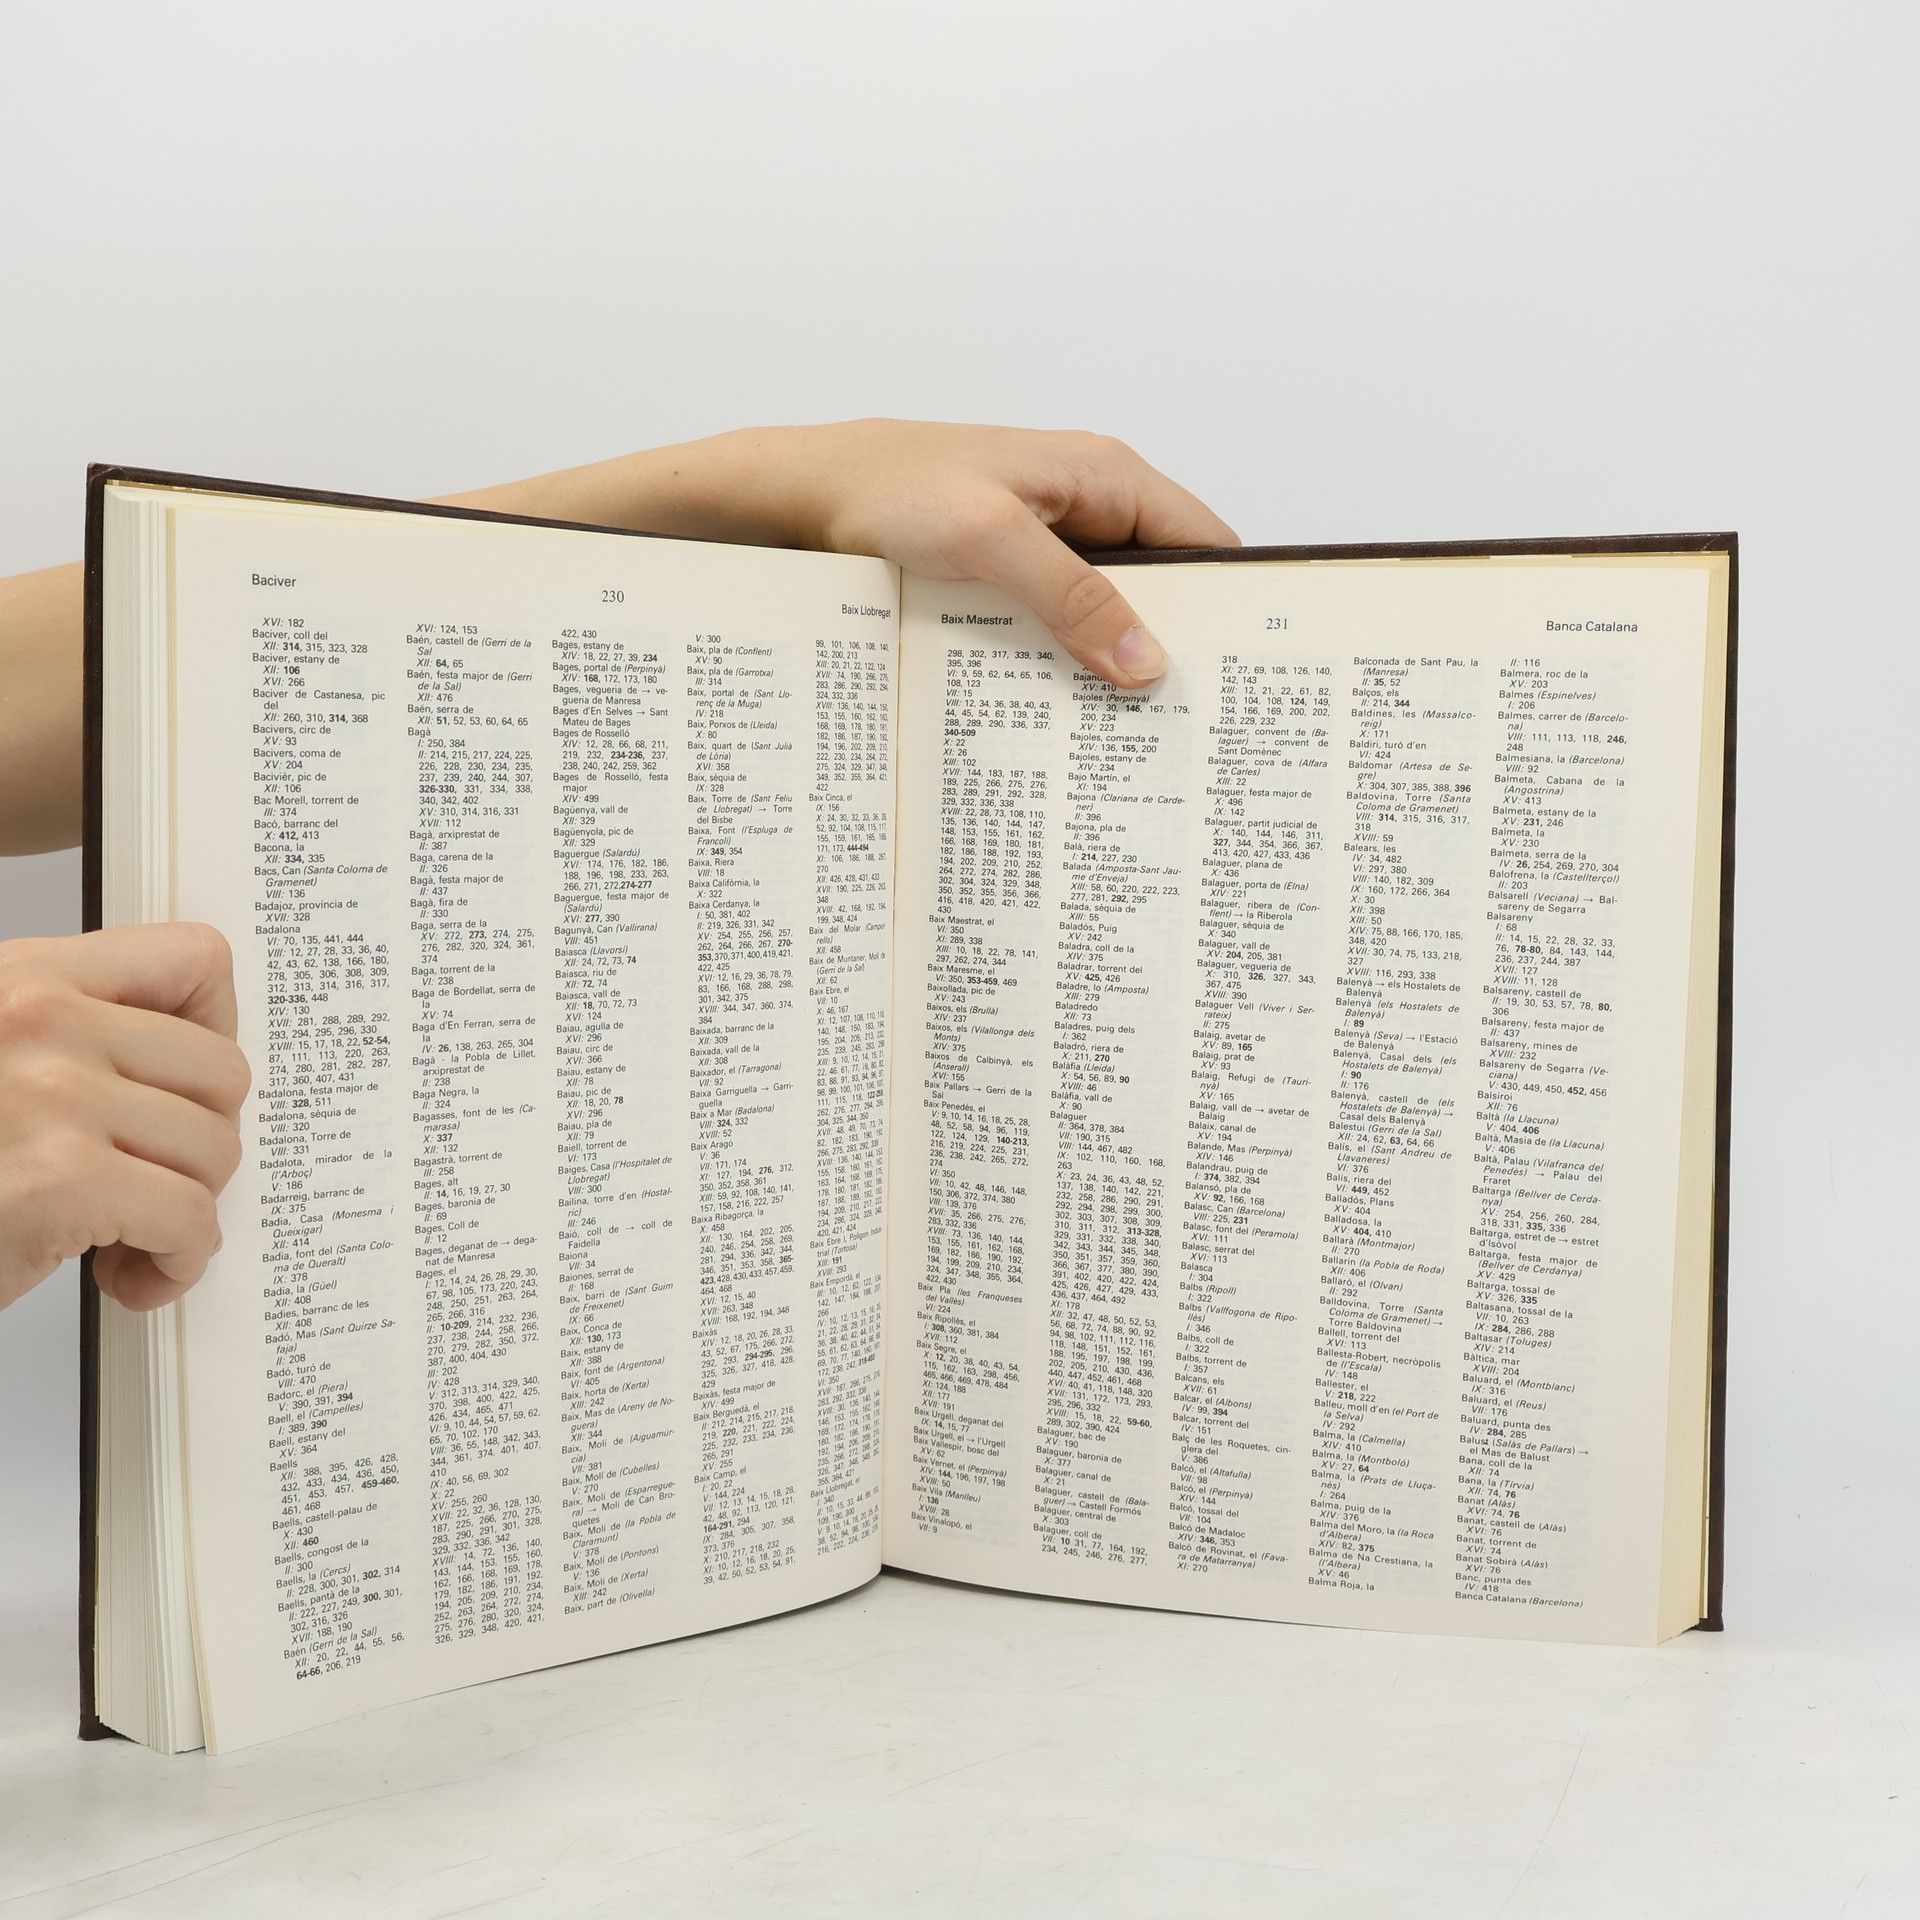 Baciver
230
Baix Llobregat
XVI: 182
Baciver, coll del
XII: 314, 315, 323, 328
Baciver, estany de
XII: 106
XVI: 266
Baciver de Castanesa, pic
del
XII: 260, 310, 314, 368
Bacivers, circ de
XV: 93
Bacivers, coma de
XV: 204
Bacivièr, pic de
XII: 106
Bac Morell, torrent de
III: 374
Bacó, barranc del
X: 412, 413
Bacona, la
XII: 334, 335
Bacs, Can (Santa Coloma de
Gramenet)
VIII: 136
Badajoz, província de
XVII: 328
Badalona
VI: 70, 135, 441, 444
VIII: 12, 27, 28, 33, 36, 40,
42, 43, 62, 138, 166, 180,
278, 305, 306, 308, 309,
312, 313, 314, 316, 317,
320-336, 448
XIV: 130
XVII: 281, 288, 289, 292,
293, 294, 295, 296, 330
XVIII: 15, 17, 18, 22, 52-54,
87, 111, 113, 220, 263,
274, 280, 281, 282, 287,
317, 360, 407, 431
Badalona, festa major de
VIII: 328, 511
Badalona, sèquia de
VIII: 320
Badalona, Torre de
VIII: 331
Badalota, mirador de la
(l'Arboç)
V: 186
Badarreig, barranc de
IX: 375
Badia, Casa (Monesma i
Queixigar)
XII: 414
Badia, font del (Santa Colo-
ma de Queralt)
IX: 378
Badia, la (Güel)
XII: 408
Badies, barranc de les
XII: 408
Badó, Mas (Sant Quirze Sa-
faja)
II: 208
Badó, turó de
VIII: 470
Badorc, el (Piera)
V: 390, 391, 394
Baell, el (Campelles)
I: 389, 390
Baell, estany del
XV: 364
Baells
XII: 388, 395, 426, 428,
432, 433, 434, 436, 450,
451, 453, 457, 459-460,
461, 468
Baells, castell-palau de
X: 430
XII: 460
Baells, congost de la
II: 300
Baells, la (Cercs)
II: 228, 300, 301, 302, 314
Baells, pantà de la
II: 222, 227, 249, 300, 301,
302, 316, 326
XVII: 188, 190
Baén (Gerri de la Sal)
XII: 20, 22, 44, 55, 56,
64-66, 206, 219
XVI: 124, 153
Baén, castell de (Gerri de la
Sal)
XII: 64, 65
Baén, festa major de (Gerri
de la Sal)
XII: 476
Baén, serra de
XII: 51, 52, 53, 60, 64, 65
Bagà
I: 250, 384
II: 214, 215, 217, 224, 225,
226, 228, 230, 234, 235,
237, 239, 240, 244, 307,
326-330, 331, 334, 338,
340, 342, 402
XV: 310, 314, 316, 331
XVII: 112
Bagà, arxiprestat de
II: 387
Bagà, carena de la
II: 326
Bagà, festa major de
II: 437
Bagà, fira de
II: 330
Bagà, serra de la
XV: 272, 273, 274, 275,
276, 282, 320, 324, 361,
374
Baga, torrent de la
VI: 238
Baga de Bordellat, serra de
la
XV: 74
Baga d'En Ferran, serra de
la
IV: 26, 138, 263, 265, 304
Bagà - la Pobla de Lillet,
arxiprestat de
II: 238
Baga Negra, la
II: 324
Bagasses, font de les (Ca-
marasa)
X: 337
XII: 132
Bagastrà, torrent de
III: 258
Bages, alt
II: 14, 16, 19, 27, 30
Bages, baronia de
II: 69
Bages, Coll de
II: 12
Bages, deganat de → dega-
nat de Manresa
Bages, el
I: 12, 14, 24, 26, 28, 29, 30,
67, 98, 105, 173, 220, 243,
248, 250, 251, 263, 264,
265, 266, 316
II: 10-209, 214, 232, 236,
237, 238, 244, 258, 266,
270, 279, 282, 350, 372,
387, 400, 404, 430
III: 202
IV: 428
V: 312, 313, 314, 329, 340,
370, 398, 400, 422, 425,
426, 434, 465, 471
VI: 9, 10, 44, 54, 57, 59, 62,
65, 70, 102, 170
VIII: 36, 55, 148, 342, 343,
344, 361, 374, 401, 407,
410
IX: 40, 56, 69, 302
X: 22
XV: 255, 260
XVII: 22, 32, 36, 128, 130,
187, 225, 266, 270, 275,
283, 290, 291, 301, 328,
329, 332, 336, 342
XVIII: 14, 72, 136, 140,
143, 144, 153, 155, 160,
162, 166, 168, 169, 178,
179, 182, 186, 191, 192,
194, 205, 209, 210, 234,
252, 263, 264, 272, 274,
275, 276, 280, 320, 324,
326, 329, 348, 420, 421,
422, 430
Bages, estany de
XIV: 18, 22, 27, 39, 234
Bages, portal de (Perpinyà)
XIV: 168, 172, 173, 180
Bages, vegueria de → ve-
gueria de Manresa
Bages d'En Selves → Sant
Mateu de Bages
Bages de Rosselló
XIV: 12, 28, 66, 68, 211,
219, 232, 234-236, 237,
238, 240, 242, 259, 362
Bages de Rosselló, festa
major
XIV: 499
Bagüenya, vall de
XII: 329
Bagüenyola, pic de
XII: 329
Baguergue (Salardú)
XVI: 174, 176, 182, 186,
188, 196, 198, 233, 263,
266, 271, 272, 274-277
Baguergue, festa major de
(Salardú)
XVI: 277, 390
Bagunyà, Can (Vallirana)
VIII: 451
Baiasca (Llavorsí)
XII: 24, 72, 73, 74
Baiasca, riu de
XII: 72, 74
Baiasca, vall de
XII: 18, 70, 72, 73
XVI: 124
Baiau, agulla de
XVI: 296
Baiau, circ de
XVI: 366
Baiau, estany de
XII: 78
Baiau, pic de
XII: 18, 20, 78
XVI: 296
Baiau, pla de
XII: 79
Baiell, torrent de
VI: 173
Baiges, Casa (l'Hospitalet de
Llobregat)
VIII: 300
Bailina, torre d'en (Hostal-
ric)
III: 246
Baió, coll de → coll de
Faidella
Baiona
VII: 34
Baiones, serrat de
II: 168
Baix, barri de (Sant Guim
de Freixenet)
IX: 66
Baix, Conca de
XII: 130, 173
Baix, estany de
XII: 388
Baix, font de (Argentona)
VI: 405
Baix, horta de (Xerta)
XIII: 242
Baix, Mas de (Areny de No-
guera)
XII: 344
Baix, Molí de (Aiguamúr-
cia)
VII: 381
Baix, Molí de (Cubelles)
V: 270
Baix, Molí de (Esparregue-
ra) → Molí de Can Bro-
quetes
Baix, Molí de (la Pobla de
Claramunt)
V: 378
Baix, Molí de (Pontons)
V: 136
Baix, Molí de (Xerta)
XIII: 242
Baix, part de (Olivella)
V: 300
Baix, pla de (Conflent)
XV: 90
Baix, pla de (Garrotxa)
III: 314
Baix, portal de (Sant Llo-
renç de la Muga)
IV: 218
Baix, Porxos de (Lleida)
X: 80
Baix, quart de (Sant Julià
de Lòria)
XVI: 358
Baix, sèquia de
IX: 328
Baix, Torre de (Sant Feliu
de Llobregat) → Torre
del Bisbe
Baixa, Font (l'Espluga de
Francolí)
IX: 349, 354
Baixa, Riera
VIII: 18
Baixa Califòrnia, la
X: 322
Baixa Cerdanya, la
I: 50, 381, 402
II: 219, 326, 331, 342
XV: 254, 255, 256, 257,
262, 264, 266, 267, 270-
353, 370, 371, 400, 419, 421,
422, 425
XVI: 12, 16, 29, 36, 78, 79,
83, 166, 168, 288, 298,
301, 342, 375
XVIII: 344, 347, 360, 374,
384
Baixada, barranc de la
XII: 309
Baixada, vall de la
XII: 308
Baixador, el (Tarragona)
VII: 92
Baixa Garriguella → Garri-
guella
Baix a Mar (Badalona)
VIII: 324, 332
XVIII: 52
Baix Aragó
V: 36
VII: 171, 174
XI: 127, 194, 276, 312,
350, 352, 358, 361
XIII: 59, 92, 108, 140, 141,
157, 158, 216, 222, 257
Baixa Ribagorça, la
X: 458
XII: 130, 164, 202, 205,
240, 246, 254, 258, 269,
281, 294, 336, 342, 344,
346, 351, 353, 358, 365-
423, 428, 430, 433, 457, 459,
464, 468
XVI: 12, 15, 40
XVII: 263, 348
XVIII: 168, 192, 194, 348
Baixàs
XIV: 12, 18, 20, 26, 28, 33,
43, 52, 67, 175, 266, 272,
292, 293, 294-295, 296,
325, 326, 327, 418, 428,
429
Baixàs, festa major de
XIV: 499
Baix Berguedà, el
II: 212, 214, 215, 217, 218,
219, 220, 221, 222, 224,
225, 232, 233, 234, 236,
265, 291
XV: 255
Baix Camp, el
I: 20, 22
V: 144, 224
VII: 12, 13, 14, 15, 18, 28,
42, 48, 92, 113, 120, 121,
164-291, 294
IX: 284, 305, 307, 358,
373, 376
X: 210, 217, 218, 232
XI: 10, 12, 16, 18, 20, 25,
39, 42, 50, 52, 53, 54, 91,
99, 101, 106, 108, 140,
142, 200, 213
Baix Cinca, el
IX: 156
Baix del Molar (Campor-
rells)
XII: 458
Baix de Muntaner, Molí de
(Gerri de la Sal)
XII: 62
Baix Ebre, el
VII: 10
X: 46, 167
Baix Ebre I, Polígon Indus-
trial (Tortosa)
XIII: 191
XVIII: 293
Baix Empordà, el
Baix Llobregat, el
I: 340
Baix Maestrat
231
Banca Catalana
298, 302, 317, 339, 340,
395, 396
VI: 9, 59, 62, 64, 65, 106,
108, 123
VII: 15
VIII: 12, 34, 36, 38, 40, 43,
44, 45, 54, 62, 139, 240,
288, 289, 290, 336, 337,
340-509
X: 22
XI: 26
XIII: 102
XVII: 144, 183, 187, 188,
189, 225, 266, 275, 276,
283, 289, 291, 292, 328,
329, 332, 336, 338
XVIII: 22, 28, 73, 108, 110,
135, 136, 140, 144, 147,
148, 153, 155, 161, 162,
166, 168, 169, 180, 181,
182, 186, 188, 192, 193,
194, 202, 209, 210, 252,
264, 272, 274, 282, 286,
302, 304, 324, 329, 348,
350, 352, 355, 356, 366,
416, 418, 420, 421, 422,
430
Baix Maestrat, el
VI: 350
XI: 289, 338
XIII: 10, 18, 22, 78, 141,
297, 262, 274, 344
Baix Maresme, el
VI: 350, 353-459, 469
Baixollada, pic de
XV: 243
Baixos, els (Brullà)
XIV: 237
Baixos, els (Vilallonga dels
Monts)
XIV: 375
Baixos de Calbinyà, els
(Anserall)
XVI: 155
Baix Pallars → Gerri de la
Sal
Baix Penedès, el
V: 9, 10, 14, 16, 18, 25, 28,
48, 52, 58, 94, 96, 119,
122, 124, 129, 140-213,
216, 219, 224, 225, 231,
236, 238, 242, 265, 272,
274
VI: 350
VII: 10, 42, 48, 146, 148,
150, 306, 372, 374, 380
VIII: 139, 376
XVII: 35, 266, 275, 276,
283, 332, 336
XVIII: 73, 136, 140, 144,
153, 155, 161, 162, 168,
169, 182, 186, 190, 192,
194, 199, 209, 210, 234,
324, 347, 348, 355, 364,
422, 430
Baix Pla (les Franqueses
del Vallès)
VI: 224
Baix Ripollès, el
I: 308, 360, 381, 384
XVII: 112
Baix Segre, el
X: 12, 20, 38, 40, 43, 54,
115, 162, 163, 298, 456,
465, 466, 469, 478, 484
XI: 124, 188
XII: 177
XVII: 191
Baix Urgell, deganat del
IX: 14, 15, 77
Baix Urgell, el → l'Urgell
Baix Vallespir, bosc del
XV: 62
Baix Vernet, el (Perpinyà)
XIV: 144, 196, 197, 198
XVIII: 50
Baix Vila (Manlleu)
I: 136
XVIII: 28
Baix Vinalopó, el
VII: 9
XV: 410
Bajoles (Perpinyà)
XIV: 30, 146, 167, 179,
200, 234
XV: 223
Bajoles, comanda de
XIV: 136, 155, 200
Bajoles, estany de
XIV: 234
Bajo Martín, el
XI: 194
Bajona (Clariana de Carde-
ner)
II: 396
Bajona, pla de
II: 396
Balà, riera de
I: 214, 227, 230
Balada (Amposta-Sant Jau-
me d'Enveja)
XIII: 58, 60, 220, 222, 223,
277, 281, 292, 295
Balada, sèquia de
XIII: 55
Baladós, Puig
XV: 242
Baladra, coll de la
XIV: 375
Baladrar, torrent del
XV: 425, 426
Baladre, lo (Amposta)
XIII: 279
Baladredo
XII: 73
Baladres, puig dels
I: 362
Baladró, riera de
X: 211, 270
Balàfia (Lleida)
X: 54, 56, 89, 90
XVIII: 46
Balàfia, vall de
X: 90
Balaguer
II: 364, 378, 384
VII: 190, 315
VIII: 144, 467, 482
IX: 102, 110, 160, 168,
263
X: 23, 24, 36, 43, 48, 52,
137, 138, 140, 142, 221,
232, 258, 286, 290, 291,
292, 294, 298, 299, 300,
302, 303, 307, 308, 309,
310, 311, 312, 313-328,
329, 331, 332, 338, 340,
342, 343, 344, 345, 348,
350, 351, 357, 359, 360,
366, 367, 377, 380, 390,
391, 402, 420, 422, 424,
425, 426, 427, 429, 433,
436, 437, 464, 492
XI: 178
XII: 32, 47, 48, 50, 52, 53,
56, 68, 72, 74, 88, 90, 92,
94, 98, 102, 111, 112, 116,
118, 148, 151, 152, 161,
188, 195, 197, 198, 199,
202, 205, 210, 430, 436,
440, 447, 452, 461, 468
XVI: 40, 41, 118, 148, 320
XVII: 131, 172, 173, 293,
295, 296, 332
XVIII: 15, 18, 22, 59-60,
289, 302, 390, 424
Balaguer, bac de
XV: 190
Balaguer, baronia de
X: 377
Balaguer, canal de
X: 21
Balaguer, castell de (Bala-
guer) → Castell Formós
Balaguer, central de
X: 303
Balaguer, coll de
VII: 10, 31, 77, 164, 192,
234, 245, 246, 276, 277,
318
XI: 27, 69, 108, 126, 140,
142, 143
XIII: 12, 21, 22, 61, 82,
100, 104, 108, 124, 149,
154, 166, 169, 200, 202,
226, 229, 232
Balaguer, convent de (Ba-
laguer) → convent de
Sant Domènec
Balaguer, cova de (Alfara
de Carles)
XIII: 22
Balaguer, festa major de
X: 496
IX: 142
Balaguer, partit judicial de
X: 140, 144, 146, 311,
327, 344, 354, 366, 367,
413, 420, 427, 433, 436
Balaguer, plana de
X: 436
Balaguer, porta de (Elna)
XIV: 221
Balaguer, ribera de (Con-
flent) → la Riberola
Balaguer, sèquia de
X: 340
Balaguer, vall de
XV: 204, 205, 381
Balaguer, vegueria de
X: 310, 326, 327, 343,
367, 475
XVIII: 390
Balaguer Vell (Viver i Ser-
rateix)
II: 275
Balaig, avetar de
XV: 89, 165
Balaig, prat de
XV: 93
Balaig, Refugi de (Tauri-
nyà)
XV: 165
Balaig, vall de → avetar de
Balaig
Balaix, canal de
XV: 194
Balande, Mas (Perpinyà)
XIV: 146
Balandrau, puig de
I: 374, 382, 394
Balansó, pla de
XV: 92, 166, 168
Balasc, Can (Barcelona)
VIII: 225, 231
Balasc, font del (Peramola)
XVI: 111
Balasc, serrat del
XVI: 113
Balasca
I: 304
Balbs (Ripoll)
I: 322
Balbs (Vallfogona de Ripo-
llès)
I: 346
Balbs, coll de
I: 322
Balbs, torrent de
I: 357
Balcans, els
XVII: 61
Balcar, el (Albons)
IV: 99, 394
Balcar, torrent del
IV: 151
Balç de les Roquetes, cin-
glera del
V: 386
Balcó, el (Altafulla)
VII: 98
Balcó, el (Perpinyà)
XIV: 144
Balcó, tossal del
VII: 104
Balcó de Madaloc
XIV: 346, 353
Balcó de Rovinat, el (Fava-
ra de Matarranya)
XI: 270
Balconada de Sant Pau, la
(Manresa)
II: 35, 52
Balços, els
II: 214, 344
Baldines, les (Massalco-
reig)
X: 171
Baldiri, turó d'en
VI: 424
Baldomar (Artesa de Se-
gre)
X: 304, 307, 385, 388, 396
Baldovina, Torre (Santa
Coloma de Gramenet)
VIII: 314, 315, 316, 317,
318
XVIII: 59
Balears, les
IV: 34, 482
VI: 297, 380
VIII: 140, 182, 309
IX: 160, 172, 266, 364
X: 30
XII: 398
XIII: 50
XIV: 75, 88, 166, 170, 185,
348, 420
XVII: 30, 74, 75, 133, 218,
327
XVIII: 116, 293, 338
Balenyà → els Hostalets de
Balenyà
Balenyà (els Hostalets de
Balenyà)
I: 89
Balenyà (Seva) → l'Estació
de Balenyà
Balenyà, Casal dels (els
Hostalets de Balenyà)
I: 90
II: 176
Balenyà, castell de (els
Hostalets de Balenyà) →
Casal dels Balenyà
Balestui (Gerri de la Sal)
XII: 24, 62, 63, 64, 66
Balís, el (Sant Andreu de
Llavaneres)
VI: 376
Balís, riera del
VI: 449, 452
Balladós, Plans
XV: 404
Balladosa, la
XV: 404, 410
Ballarà (Montmajor)
II: 270
Ballarín (la Pobla de Roda)
XII: 406
Ballaró, el (Olvan)
II: 292
Balldovina, Torre (Santa
Coloma de Gramenet) →
Torre Baldovina
Ballell, torrent del
XVI: 113
Ballesta-Robert, necròpolis
de (l'Escala)
IV: 148
Ballester, el
V: 218, 222
Balleu, molí d'en (el Port de
la Selva)
IV: 292
Balma, la (Calmella)
XIV: 410
Balma, la (Montboló)
XV: 27, 64
Balma, la (Prats de Lluça-
nès)
I: 264
Balma, puig de la
XIV: 376
Balma del Moro, la (la Roca
d'Albera)
XIV: 82, 375
Balma de Na Crestiana, la
(l'Albera)
XV: 46
Balma Roja, la
II: 116
Balmera, roc de la
XV: 203
Balmes (Espinelves)
I: 206
Balmes, carrer de (Barcelo-
na)
VIII: 111, 113, 118, 246,
248
Balmesiana, la (Barcelona)
VIII: 92
Balmeta, Cabana de la
(Angostrina)
XV: 413
Balmeta, estany de la
XV: 231, 246
Balmeta, la
XV: 230
Balmeta, serra de la
IV: 26, 254, 269, 270, 304
Balofrena, la (Castellterçol)
II: 203
Balsarell (Veciana) → Bal-
sareny de Segarra
Balsareny
I: 68
II: 14, 15, 22, 28, 32, 33,
76, 78-80, 84, 143, 144,
236, 237, 244, 387
XVII: 127
XVIII: 11, 128
Balsareny, castell de
II: 19, 30, 53, 57, 78, 80,
306
Balsareny, festa major de
II: 437
Balsareny, mines de
XVIII: 232
Balsareny de Segarra (Ve-
ciana)
V: 430, 449, 450, 452, 456
Balsiroi
XII: 76
Baltà (la Llacuna)
V: 404, 406
Baltà, Masia de (la Llacuna)
V: 406
Baltà, Palau (Vilafranca del
Penedès) → Palau del
Fraret
Baltarga (Bellver de Cerda-
nya)
XV: 254, 256, 260, 284,
318, 331, 335, 336
Baltarga, estret de → estret
d'Isòvol
Baltarga, festa major de
(Bellver de Cerdanya)
XV: 429
Baltarga, tossal de
XV: 326, 335
Baltasana, tossal de la
VII: 10, 263
IX: 284, 286, 288
Baltasar (Toluges)
XIV: 214
Bàltica, mar
XVIII: 204
Baluard, el (Montblanc)
IX: 316
Baluard, el (Reus)
VII: 176
Baluard, punta des
IV: 284, 285
Balust (Salàs de Pallars) →
el Mas de Balust
Bana, coll de la
XII: 74
Bana, la (Tírvia)
XII: 74, 76
Banat (Alàs)
XVI: 74, 76
Banat, castell de (Alàs)
XVI: 76
Banat, torrent de
XVI: 74
Banat Sobirà (Alàs)
XVI: 76
Banc, punta des
IV: 418
Banca Catalana (Barcelona)